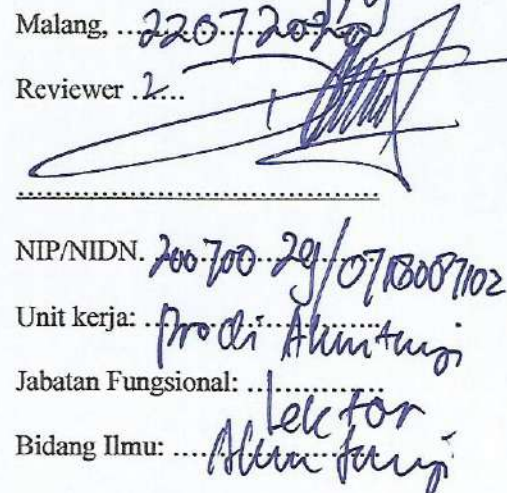 Malang, 22072020
Reviewer .2....
NIP/NIDN. 20070029/0718087102
Unit kerja: Prodi Akuntansi
Jabatan Fungsional: Lektor
Bidang Ilmu: Akuntansi